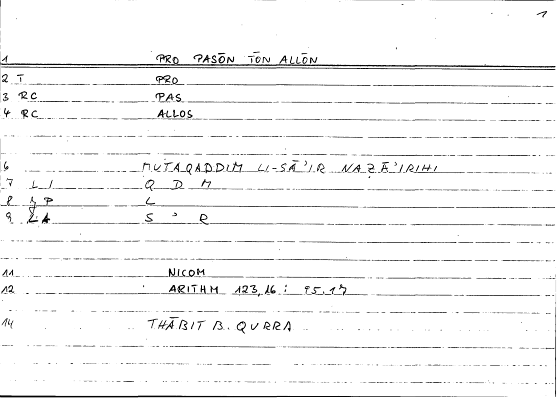 1
1 PRO PASŌN TŌN ALLŌN
2 T PRO
3 RC PAS
4 RC ALLOS
6 MUTAQADDIM LI-SĀ'IR NAẒĀ'IRIHI
7 LI Q D M
8 P L
9 LA S ' R
11 NICOM
12 ARITHM 123,16 : 95.17
14 THĀBIT B. QURRA